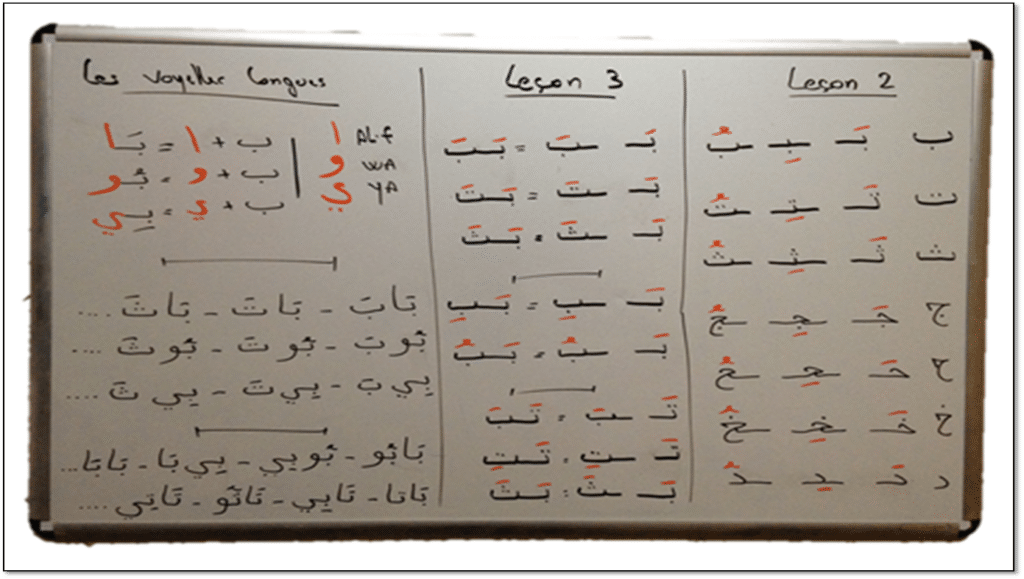 Leçon 2
ب بَـ ـبِـ ـبُ
ت تَـ ـتِـ ـتُ
ث ثَـ ـثِـ ـثُ
ج جَـ ـجِـ ـجُ
ح حَـ ـحِـ ـحُ
خ خَـ ـخِـ ـخُ
د دَ ـدِ ـدُ
Leçon 3
بَـ ـبَ = بَبَ
بَـ ـتَ = بَتَ
بَـ ـثَ = بَثَ
بَـ ـبِ = بَبِ
بَـ ـبُ = بَبُ
تَـ ـبَ = تَبَ
تَـ ـتِ = تَتِ
بَـ ـثَ = بَثَ
Les voyelles longues
ALif ا | ب + ا = بَا
WA و | ب + و = بُو
YA ي | ب + ي = بِي
بَابَ - بَاتَ - بَاثَ ....
بُوبَ - بُوتَ - بُوثَ ....
بِيبَ - بِيتَ - بِيثَ ....
بَابُو - بُوبِي - بِيبَا - بَابَا...
بَاتَا - تَابِي - تَاتُو - تَاتِي ....